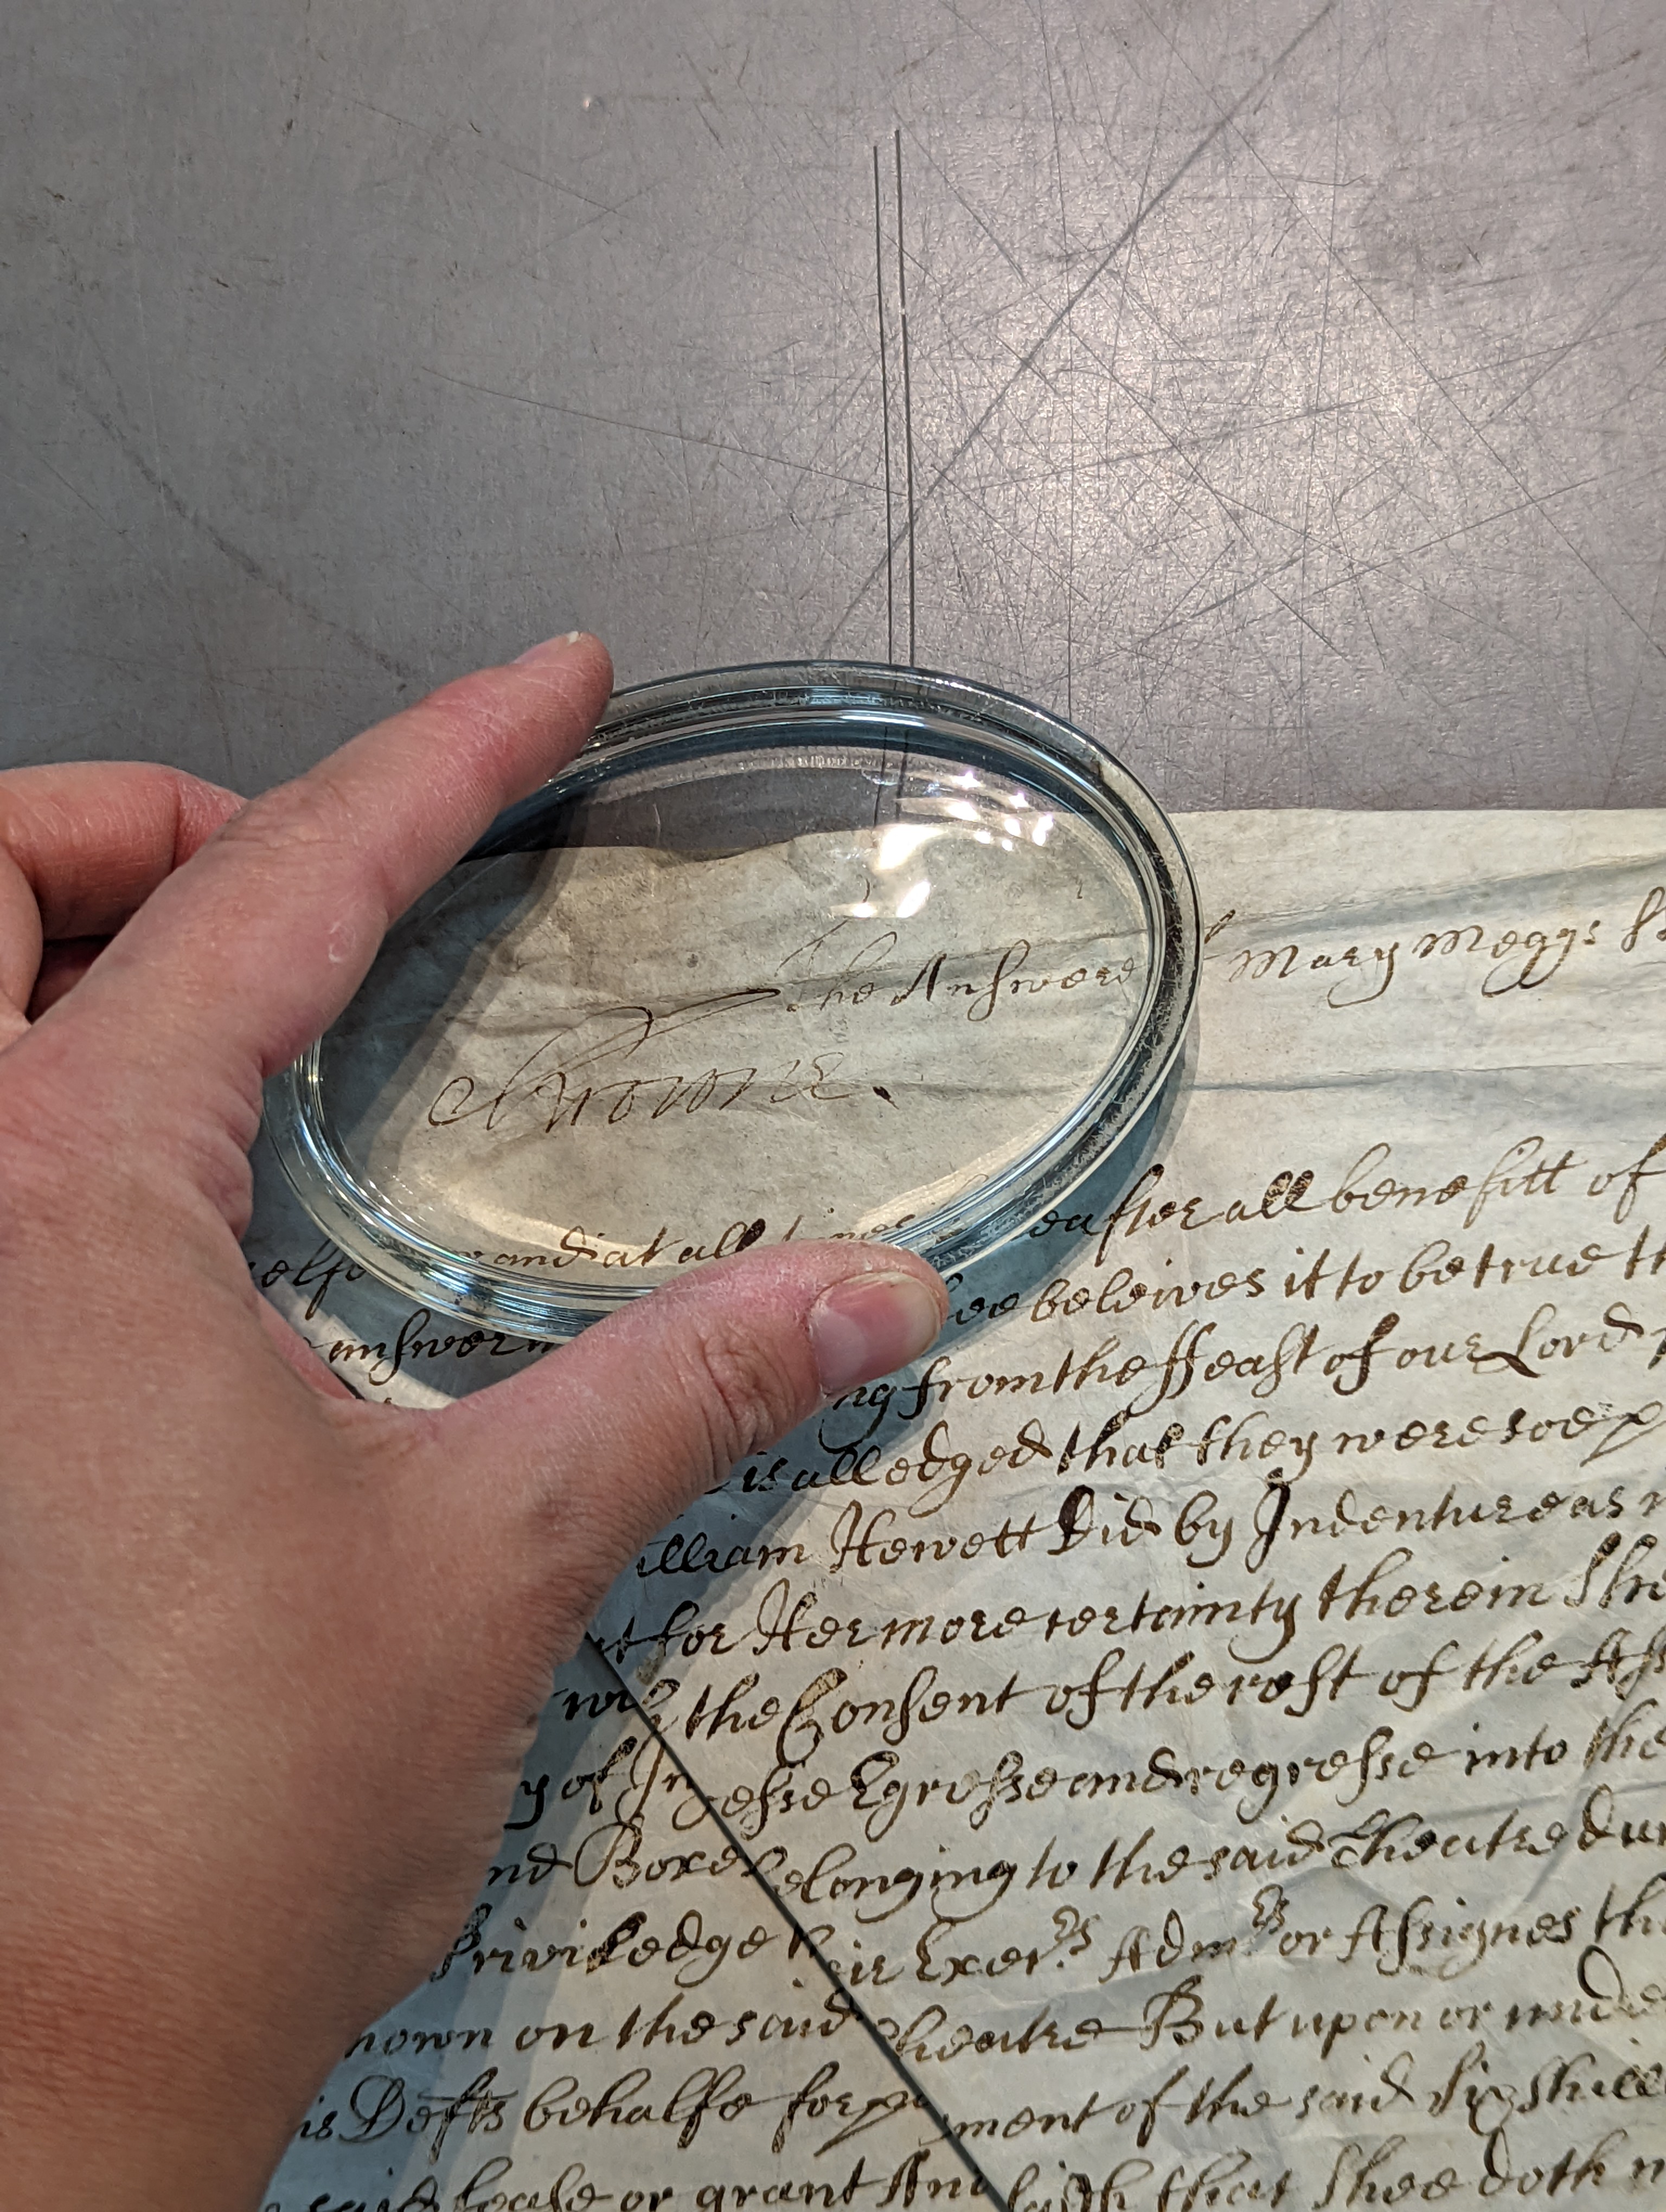 The Answere of Mary Meggs
Browne.
elfe and at all times hereafter all benefitt of
answer hee beleives it to be true th
ng from the ffeast of our Lord
is alledged that they were soe
illiam Hewett Did by Indenture as
t for Her more certainty therein Shee
wth the Consent of the rest of the Ass
y of Ingresse Egresse and regresse into the
nd Boxes belonging to the said Theatre dur
Priviledge their Exers Admrs or Assignes th
nown on the said Theatre But upon or unde
is Defts behalfe for payment of the said Six shill
said lease or grant And saith that Shee doth n